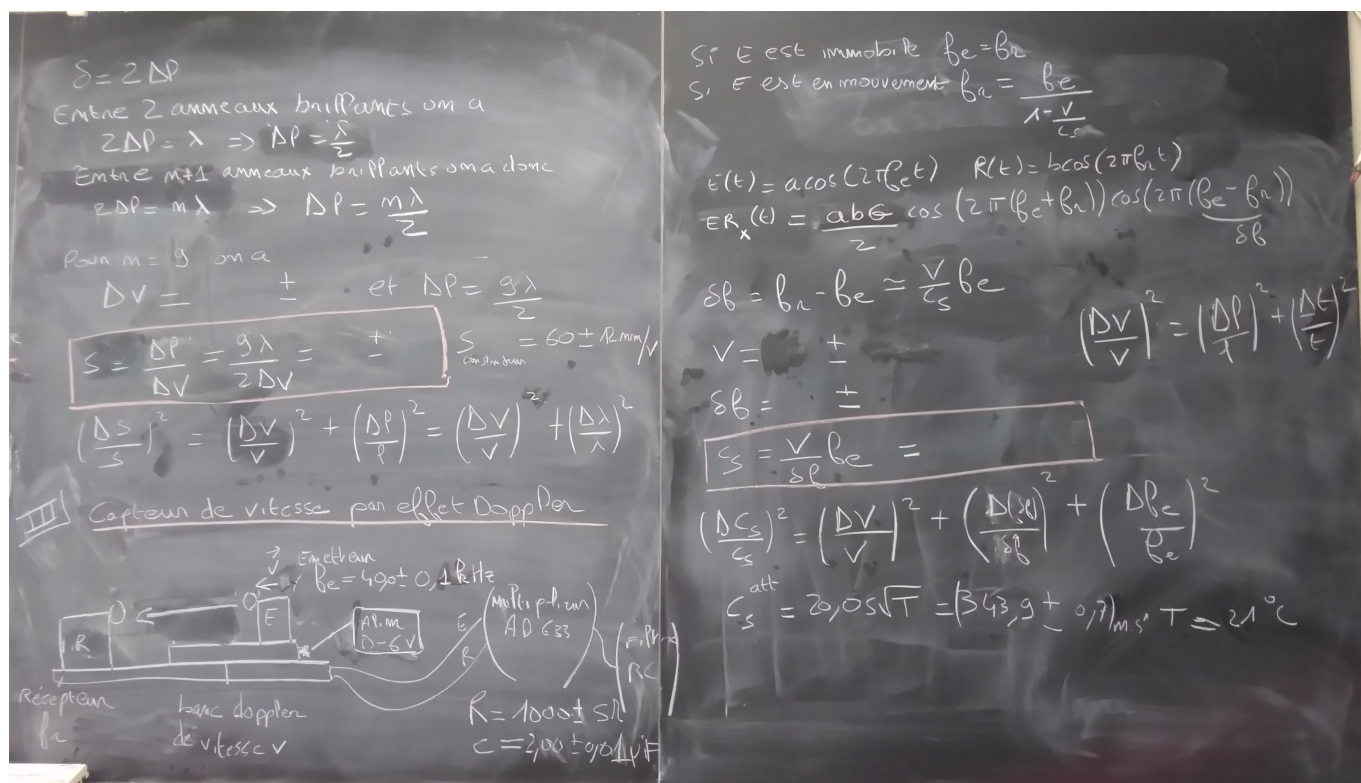 δ = 2 Δl
Entre 2 anneaux brillants on a
2Δl = λ => Δl = λ/2
Entre m+1 anneaux brillants on a donc
2Δl = mλ => Δl = mλ/2
Pour m = 9 on a
ΔV = ± et Δl = 9λ/2
S = Δl/ΔV = 9λ/2ΔV = ±
S constructeur = 60 ± 12 mm/V
(ΔS/S)² = (ΔV/V)² + (Δl/l)² = (ΔV/V)² + (Δλ/λ)²
III Capteur de vitesse par effet Doppler
V
Emetteur
fe = 40,0 ± 0,1 kHz
R
E
Alim
0-6V
E
R
Multiplieur
AD 633
Filtre
RC
Récepteur
fr
banc doppler
de vitesse v
R = 1000 ± 5Ω
C = 2,00 ± 0,01 µF
Si E est immobile fe = fr
Si E est en mouvement fr = fe/(1 - V/cs)
E(t) = a cos(2πfet) R(t) = b cos(2πfrt)
ERx(t) = ab6/2 cos (2π(fe+fr)) cos(2π(fe-fr))
δf
δf = fr - fe ≃ V/cs fe
(ΔV/V)² = (Δl/l)² + (Δt/t)²
V = ±
δf = ±
cs = V/δf fe =
(Δcs/cs)² = (ΔV/V)² + (Δ(δf)/δf)² + (Δfe/fe)²
cs att = 20,05√T = (343,9 ± 0,7) m.s⁻¹ T = 21°C